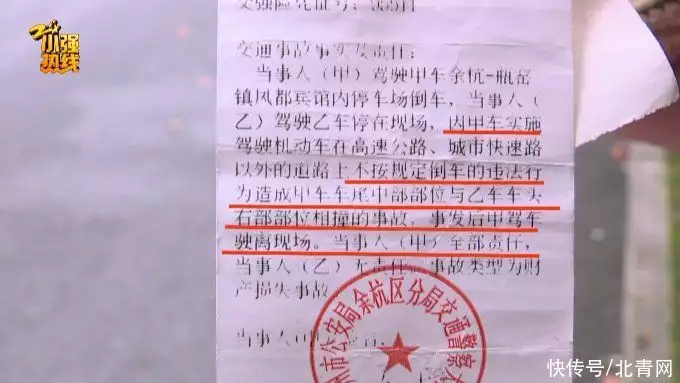 小强热线
交强险凭证号:
交通事故事实及责任:
当事人(甲)驾驶甲车余杭-瓶窑
镇凤都宾馆内停车场倒车,当事人(
乙)驾驶乙车停在现场,因甲车实施
驾驶机动车在高速公路、城市快速路
以外的道路上不按规定倒车的违法行
为造成甲车车尾中部部位与乙车车头
右部部位相撞的事故,事发后甲驾车
驶离现场。当事人(甲)全部责任,
当事人(乙)无责任。事故类型为财
产损失事故。
当事人
州市公安局余杭区分局交通警察大
快传号/北青网